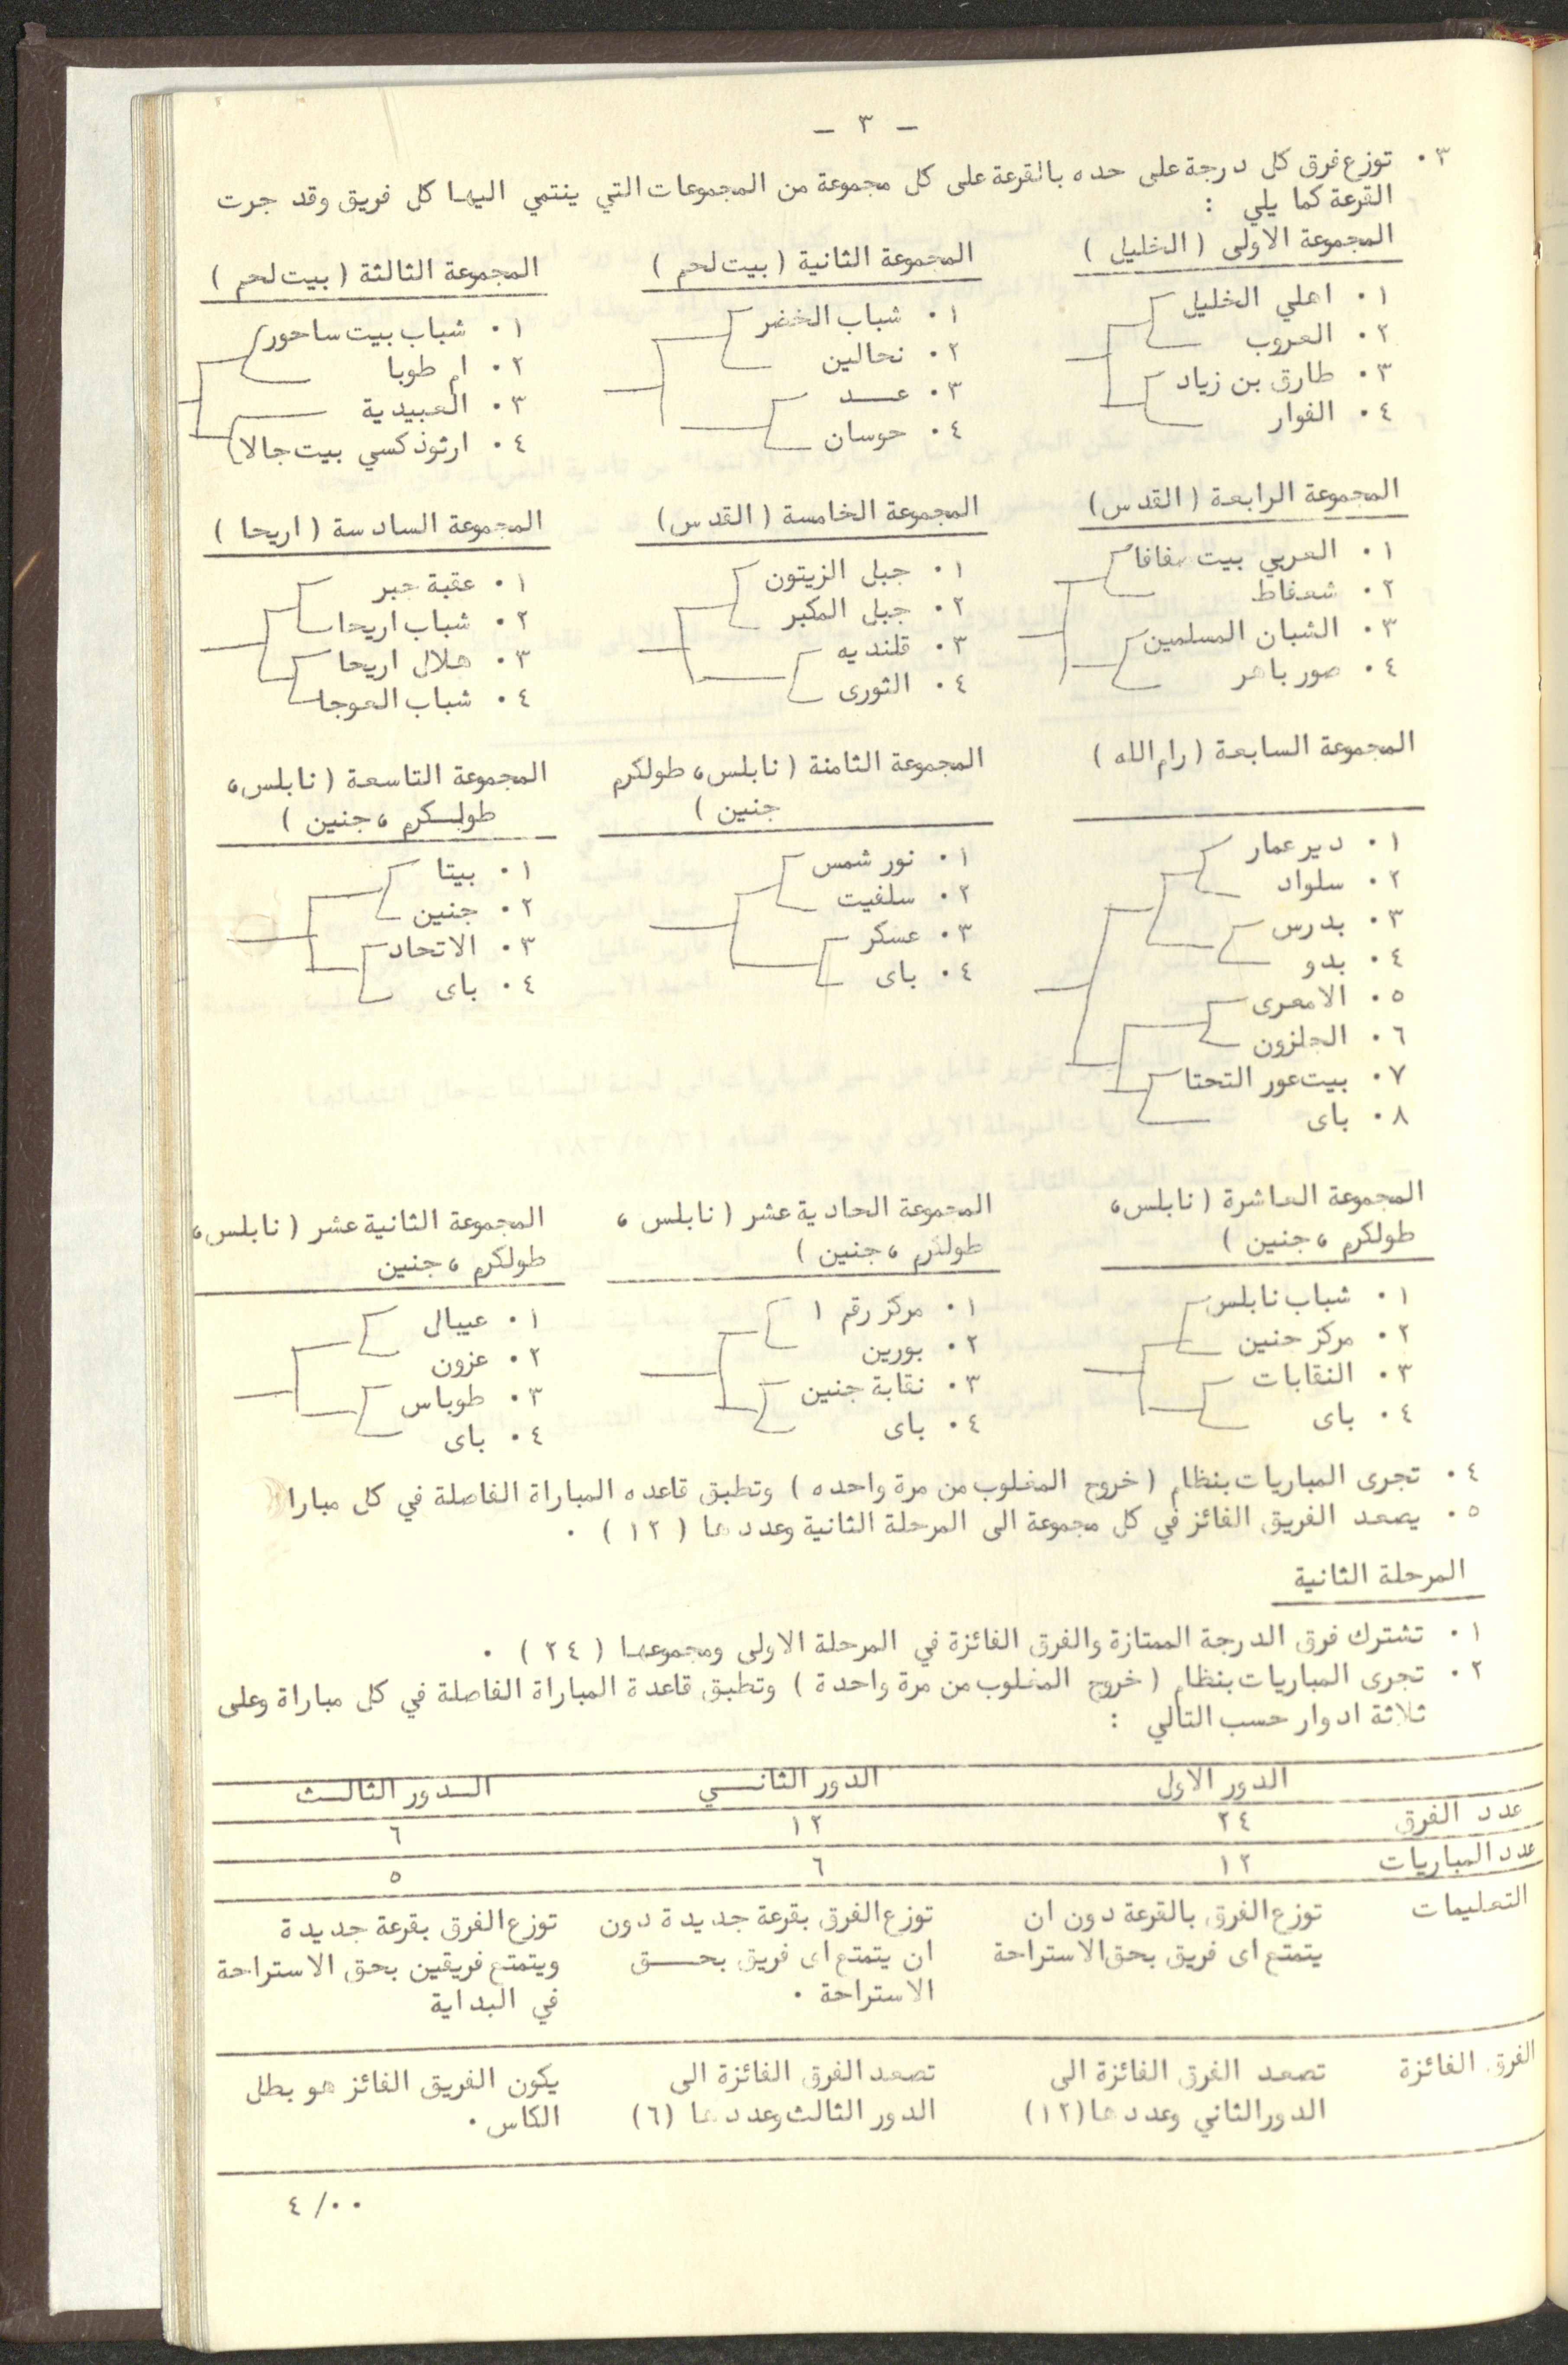 - ٣ -
٣٠ توزع فرق كل درجة على حده بالقرعة على كل مجموعة من المجموعات التي ينتمي اليها كل فريق وقد جرت
القرعة كما يلي :
المجموعة الاولى ( الخليل )
١٠ اهلي الخليل
٢٠ العروب
٣٠ طارق بن زياد
٤٠ الفوار
المجموعة الثانية ( بيت لحم )
١٠ شباب الخضر
٢٠ نحالين
٣٠ عـــد
٤٠ حوسان
المجموعة الثالثة ( بيت لحم )
١٠ شباب بيت ساحور
٢٠ ام طوبا
٣٠ العبيدية
٤٠ ارثوذكسي بيت جالا
المجموعة الرابعة ( القدس )
١٠ العربي بيت صفافا
٢٠ شعفاط
٣٠ الشبان المسلمين
٤٠ صور باهر
المجموعة الخامسة ( القدس )
١٠ جبل الزيتون
٢٠ جبل المكبر
٣٠ قلنديه
٤٠ الثورى
المجموعة السادسة ( اريحا )
١٠ عقبة جبر
٢٠ شباب اريحا
٣٠ هلال اريحا
٤٠ شباب العوجا
المجموعة السابعة ( رام الله )
١٠ دير عمار
٢٠ سلواد
٣٠ بدرس
٤٠ بدو
٥٠ الامعرى
٦٠ الجلزون
٧٠ بيت عور التحتا
٨٠ باى
المجموعة الثامنة ( نابلس، طولكرم
جنين )
١٠ نور شمس
٢٠ سلفيت
٣٠ عسكر
٤٠ باى
المجموعة التاسعة ( نابلس،
طولكرم ، جنين )
١٠ بيتا
٢٠ جنين
٣٠ الاتحاد
٤٠ باى
المجموعة العاشرة ( نابلس،
طولكرم ، جنين )
١٠ شباب نابلس
٢٠ مركز جنين
٣٠ النقابات
٤٠ باى
المجموعة الحادية عشر ( نابلس ،
طولكرم ، جنين )
١٠ مركز رقم ١
٢٠ بورين
٣٠ نقابة جنين
٤٠ باى
المجموعة الثانية عشر ( نابلس،
طولكرم ، جنين
١٠ عيبال
٢٠ عزون
٣٠ طوباس
٤٠ باى
٤٠ تجرى المباريات بنظام ( خروج المغلوب من مرة واحده ) وتطبق قاعده المباراة الفاصلة في كل مبارا
٥٠ يصعد الفريق الفائز في كل مجموعة الى المرحلة الثانية وعددها ( ١٢ ) ٠
المرحلة الثانية
١٠ تشترك فرق الدرجة الممتازة والفرق الفائزة في المرحلة الاولى ومجموعها ( ٢٤ ) ٠
٢٠ تجرى المباريات بنظام ( خروج المغلوب من مرة واحدة ) وتطبق قاعدة المباراة الفاصلة في كل مباراة وعلى
ثلاثة ادوار حسب التالي :
الدور الاول الدور الثانـــي الـدور الثالـث
عدد الفرق ٢٤ ١٢ ٦
عدد المباريات ١٢ ٦ ٥
التعليمات توزع الفرق بالقرعة دون ان توزع الفرق بقرعة جديدة دون توزع الفرق بقرعة جديدة
يتمتع اى فريق بحق الاستراحة ان يتمتع اى فريق بحـــق ويتمتع فريقين بحق الاستراحة
الاستراحة ٠ في البداية
الفرق الفائزة تصعد الفرق الفائزة الى تصعد الفرق الفائزة الى يكون الفريق الفائز هو بطل
الدور الثاني وعددها (١٢) الدور الثالث وعددها (٦) الكاس ٠
٤ /٠٠